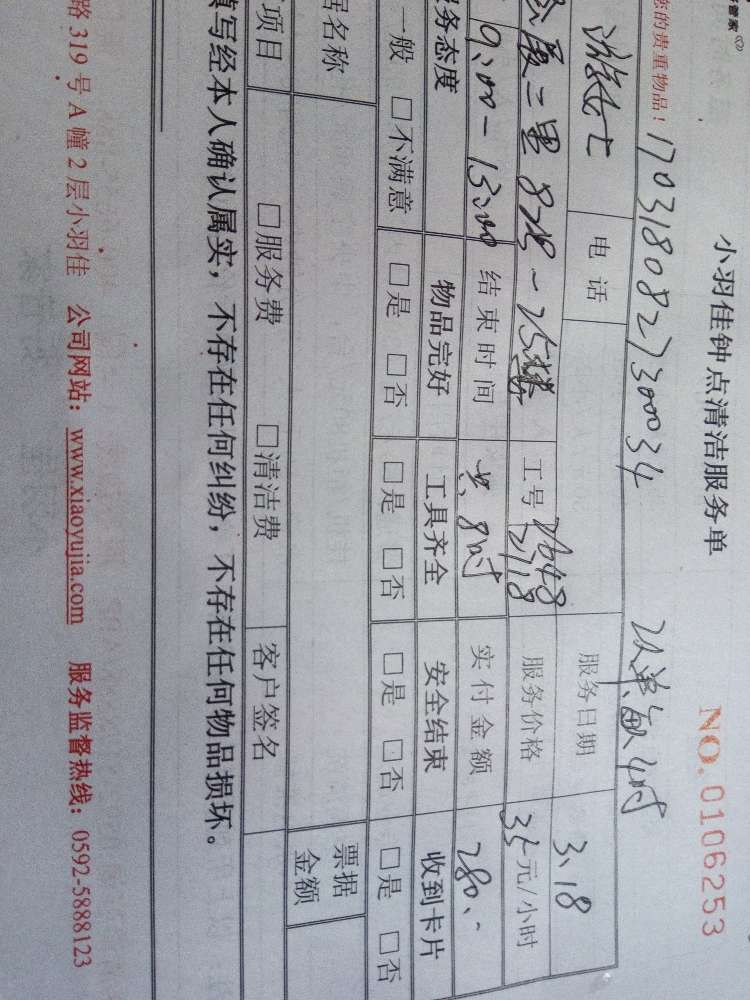 管家
小羽佳钟点清洁服务单
NO. 0106253
您的贵重物品！ 170318082730034
电话 服务日期 3.18
828-25 工号 服务价格 35元/小时
9:00-13:00 结束时间 共8时 实付金额 280.-
服务态度 物品完好 工具齐全 安全结束 收到卡片
一般 □不满意 □是 □否 □是 □否 □是 □否 □是 □否
名称 票据金额
项目 □服务费 □清洁费 客户签名
填写经本人确认属实，不存在任何纠纷，不存在任何物品损坏。
路319号A幢2层小羽佳 公司网站：www.xiaoyujia.com 服务监督热线：0592-5888123